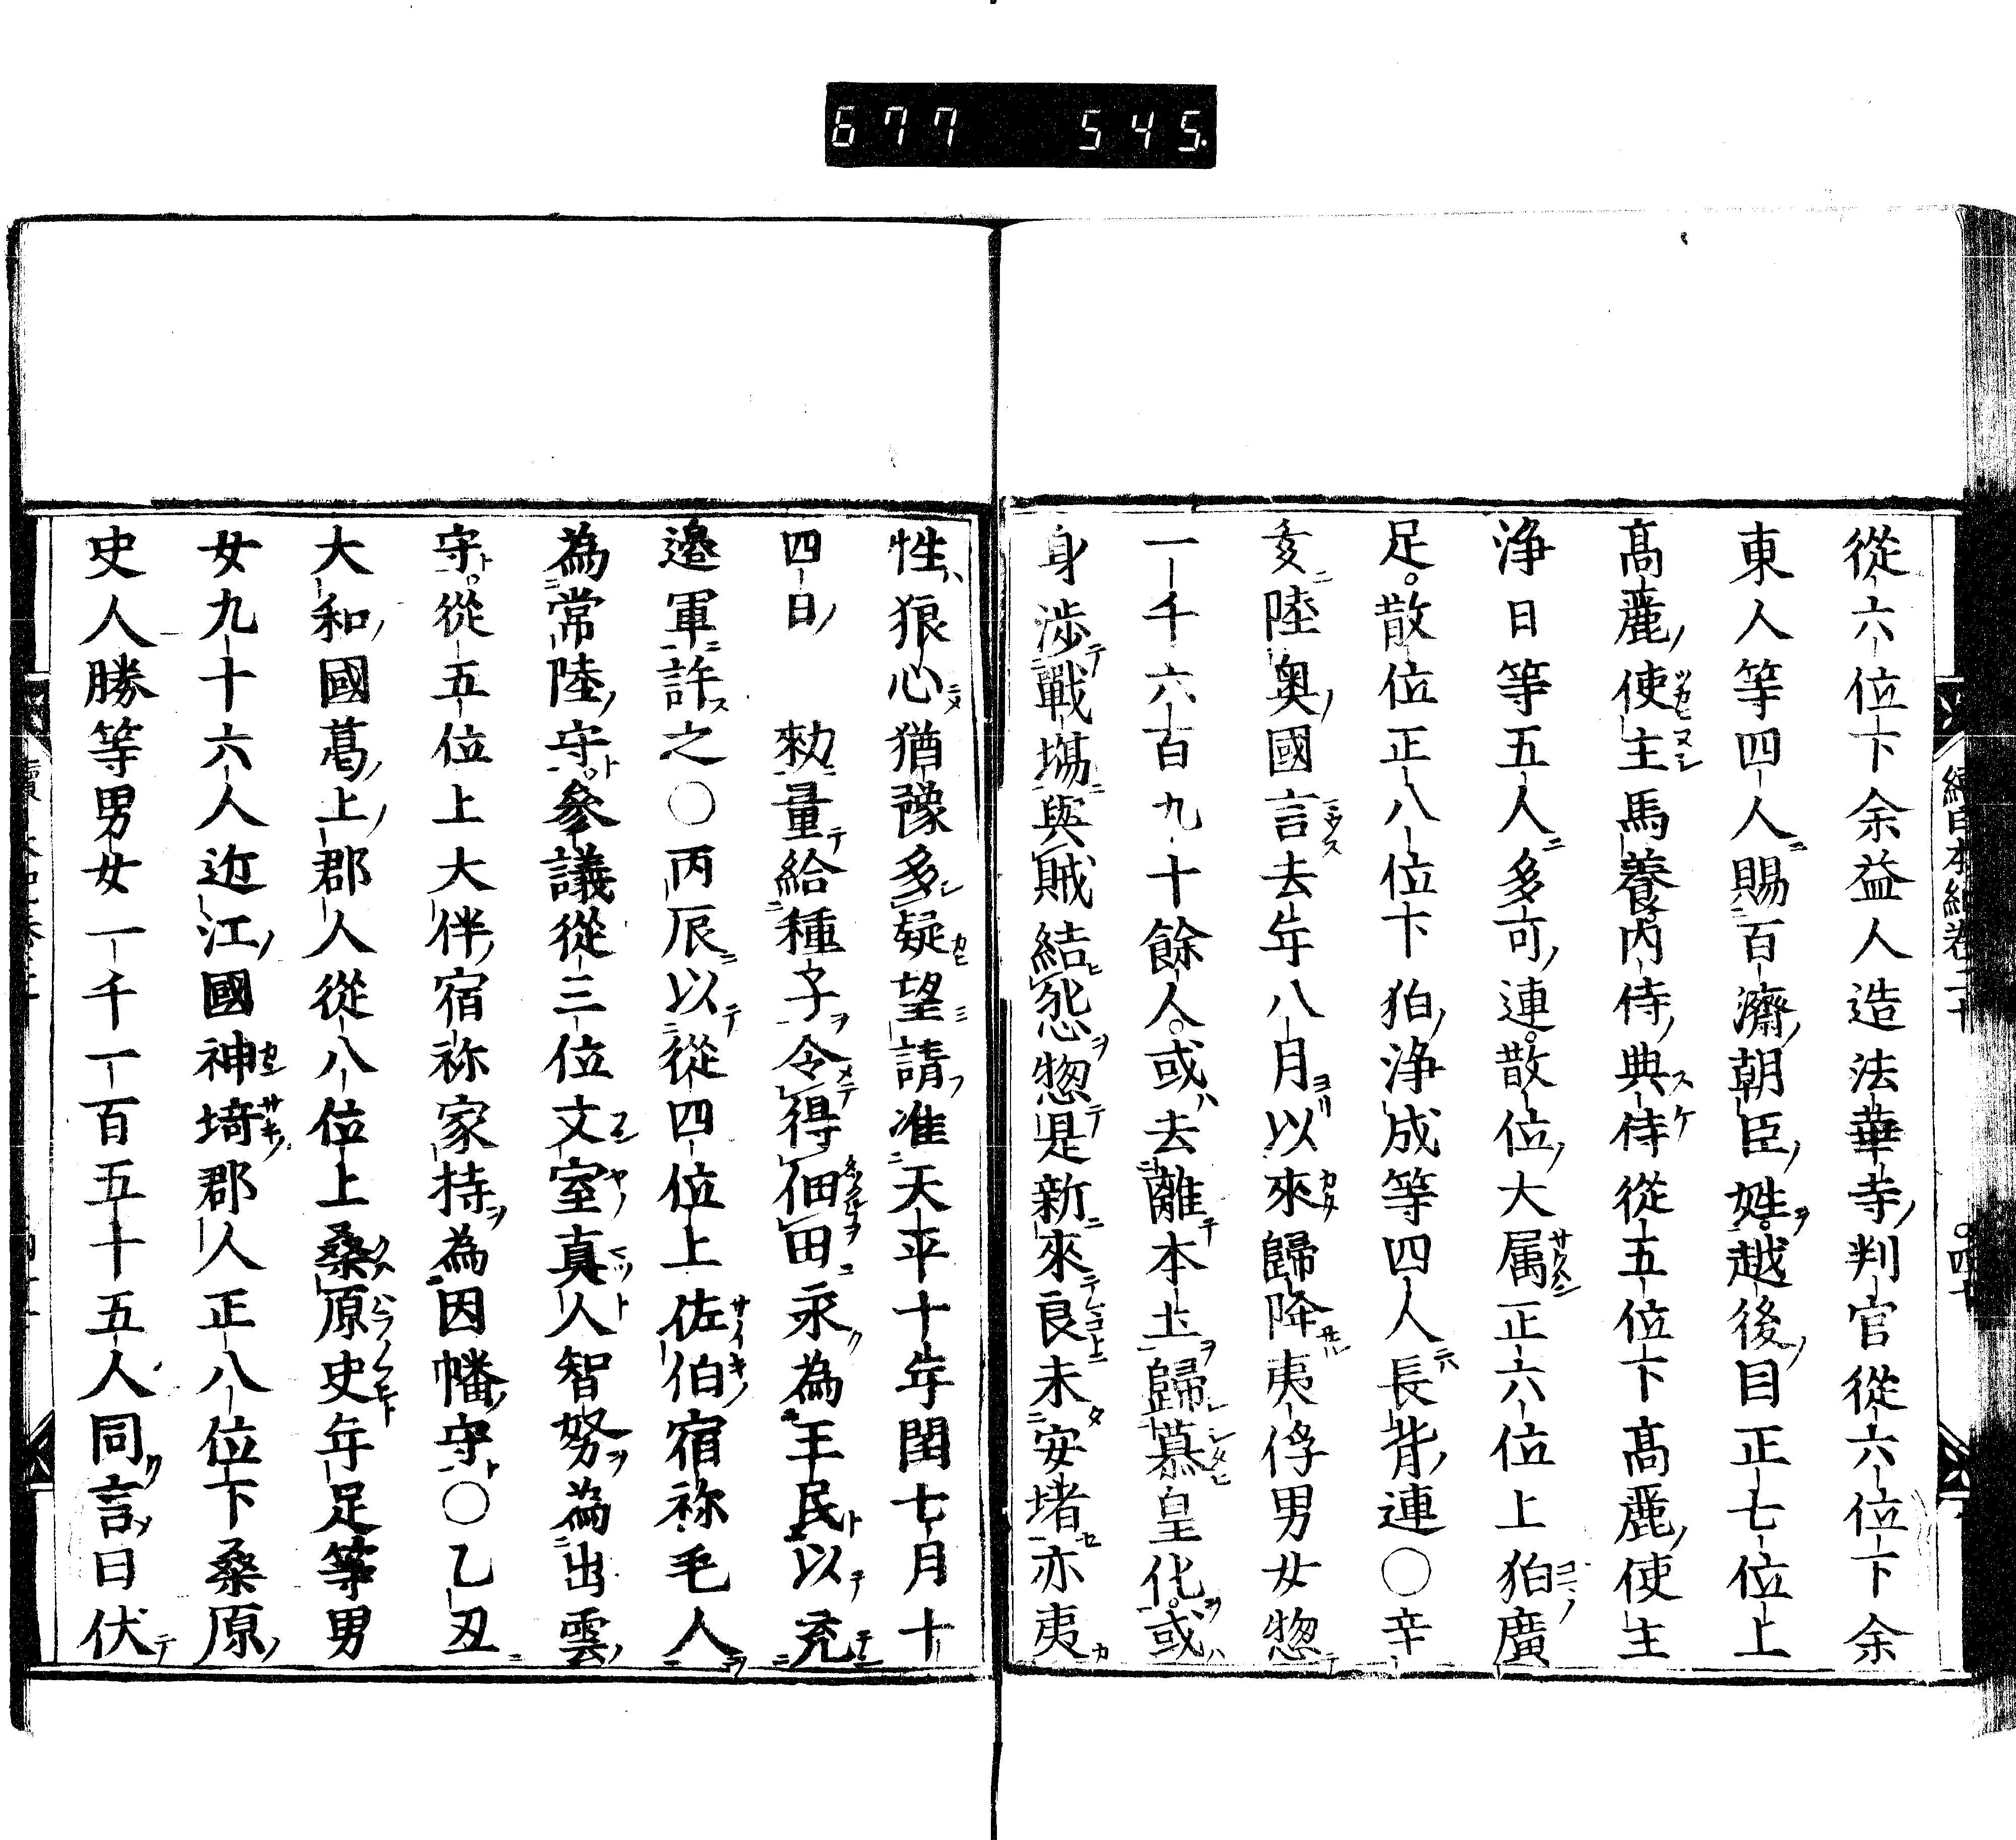 677 545.
從六位下余益人造法華寺判官從六位下余
東人等四人賜百濟朝臣姓越後目正七位上
髙麗使主馬養内侍典侍從五位下髙麗使主
浄日等五人多可連散位大属正六位上狛廣
足散位正八位下狛浄成等四人長背連○辛
亥陸奥國言去年八月以來歸降夷俘男女惣
一千六百九十餘人或去離本土歸慕皇化或
身渉戰塲與賊結怨惣是新來良未安堵亦夷
性狼心猶豫多疑望請准天平十年閏七月十
四日　勑量給種子令得佃田永為王民以充
邉軍許之○丙辰以從四位上佐伯宿祢毛人
為常陸守參議從三位文室真人智努為出雲
守從五位上大伴宿祢家持為因幡守○乙丑
大和國葛上郡人從八位上桑原史年足等男
女九十六人近江國神埼郡人正八位下桑原
史人勝等男女一千一百五十五人同言曰伏